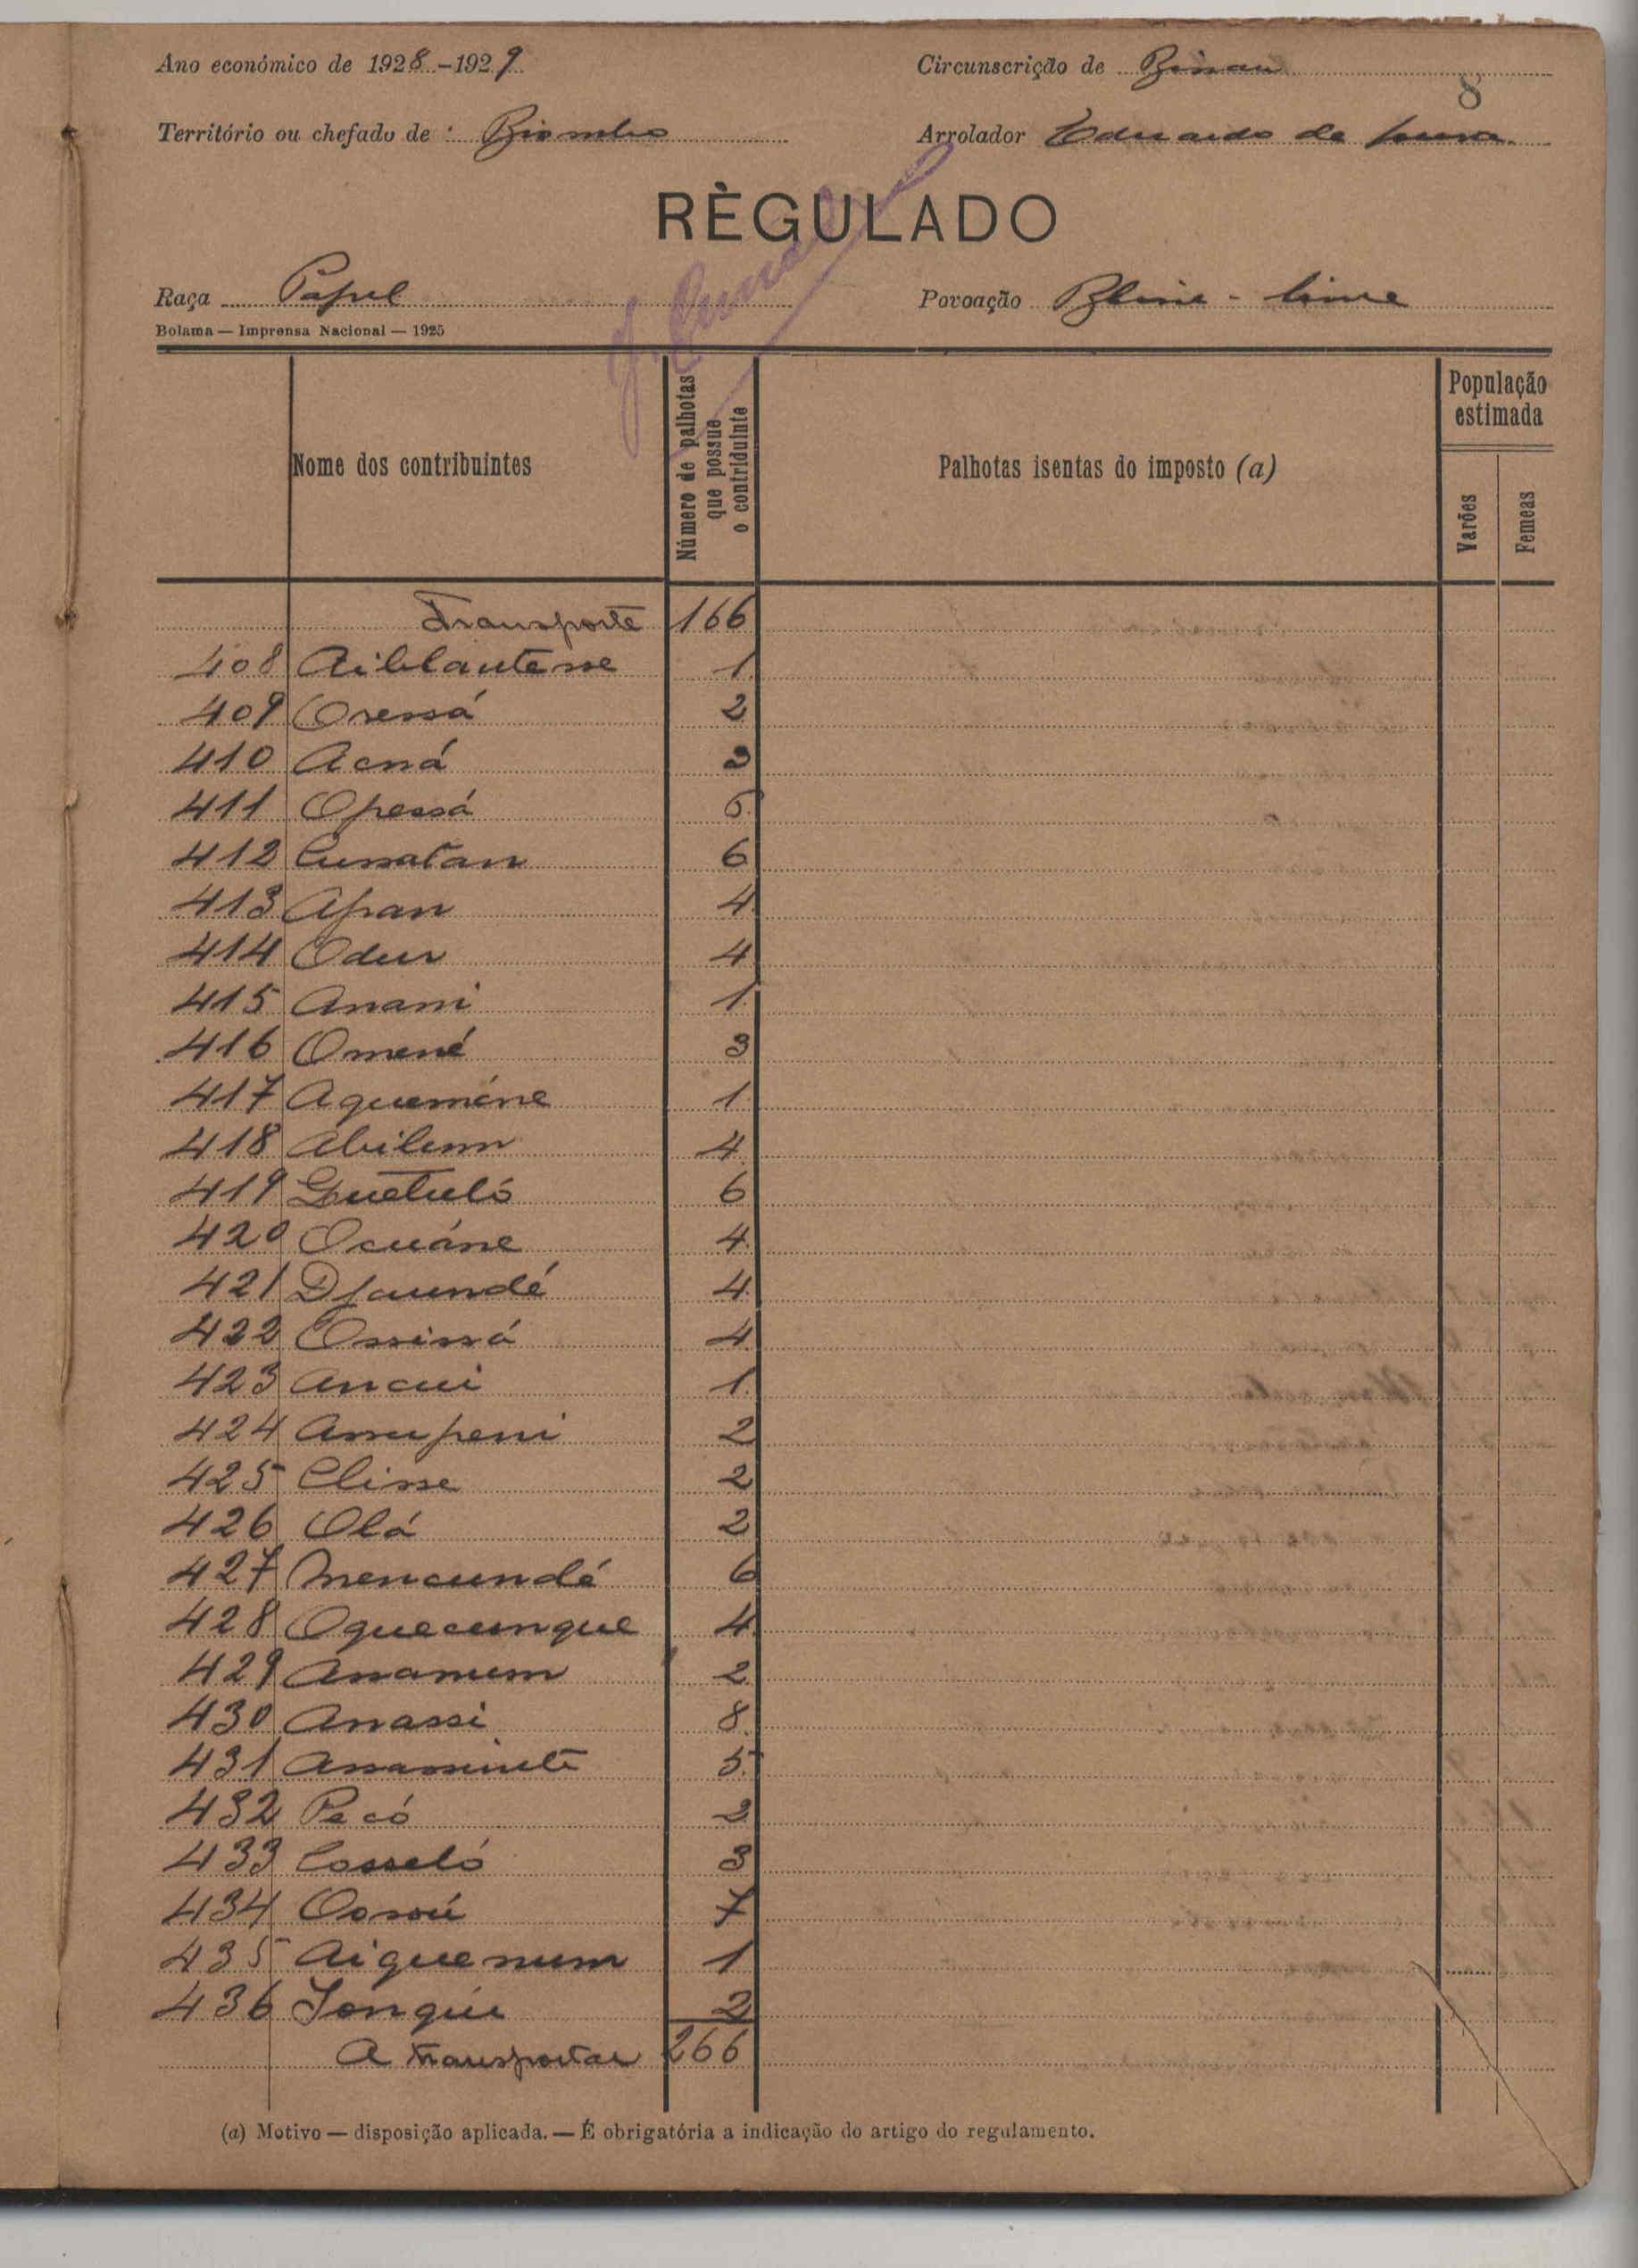 Ano económico de 1928-1929
Circunscrição de Bissau
8
Território ou chefado de: Biombo
Arrolador Eduardo de Sousa
RÈGULADO
Raça Papel
Povoação Blim-
Bolama — Imprensa Nacional — 1925
Nome dos contribuintes
Número de palhotas que possue o contriduinte
Palhotas isentas do imposto (a)
População estimada
Varões
Femeas
Transporte 166
408 1
409 Oressá 2
410 Acná 3
411 Opessá 5
412 Cussatan 6
413 Apan 4
414 Odur 4
415 Anani 1
416 Omené 3
417 Aqueméne 1
418 4
419 6
420 Ocuáne 4
421 Djaundé 4
422 Ossissá 4
423 Ancui 1
424 2
425 Clisse 2
426 Olá 2
427 Mencundé 6
428 Oquecunque 4
429 2
430 Anassi 8
431 5
432 Pecó 2
433 Cosseló 3
434 7
435 Aiquenum 1
436 2
A transportar 266
(a) Motivo — disposição aplicada. — É obrigatória a indicação do artigo do regulamento.